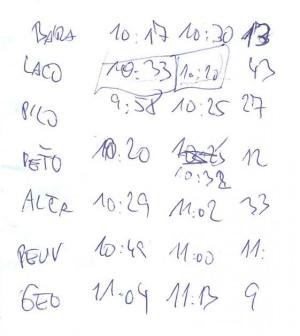 BARA 10:17 10:30 13
LACO 10:33 10:20 43
PICO 9:58 10:25 27
PETO 10:20 10:32 12
ALTER 10:29 11:02 33
PEUV 10:49 11:00 11:
GEO 11:04 11:13 9